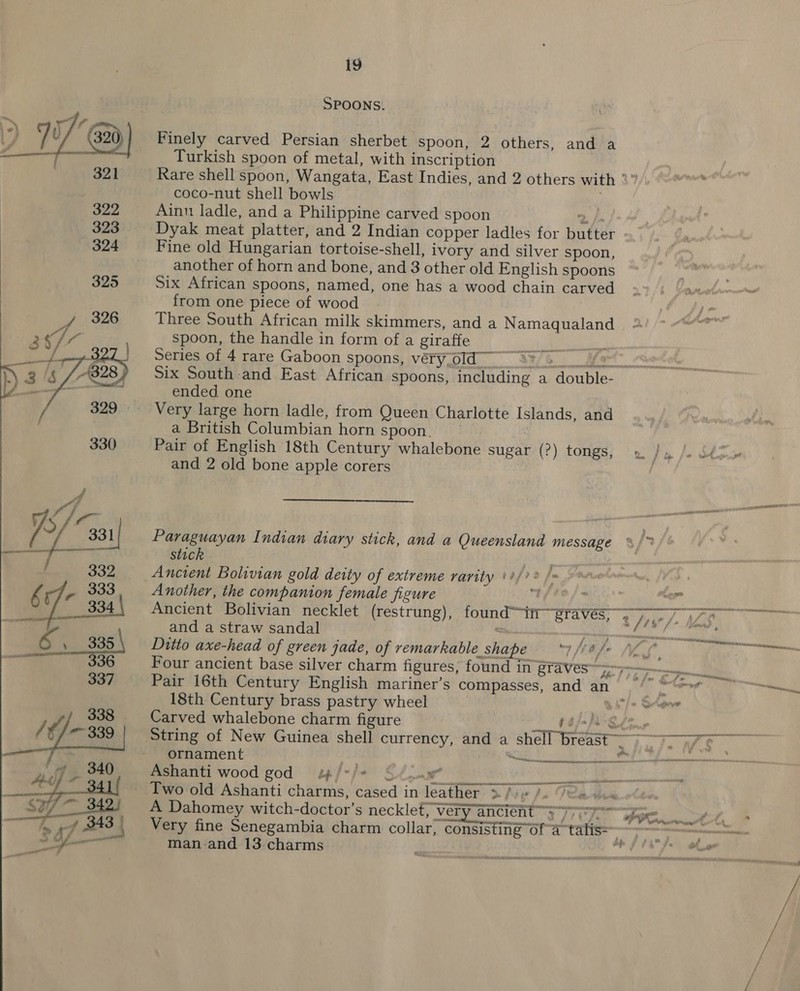 19
SPOONS.
320 Finely carved Persian sherbet spoon, 2 others, and a
Turkish spoon of metal, with inscription
321 Rare shell spoon, Wangata, East Indies, and 2 others with
coco-nut shell bowls
322 Ainu ladle, and a Philippine carved spoon
323 Dyak meat platter, and 2 Indian copper ladles for butter
324 Fine old Hungarian tortoise-shell, ivory and silver spoon,
another of horn and bone, and 3 other old English spoons
325 Six African spoons, named, one has a wood chain carved
from one piece of wood
326 Three South African milk skimmers, and a Namaqualand
spoon, the handle in form of a giraffe
327 Series of 4 rare Gaboon spoons, very old
328 Six South and East African spoons, including a double-
ended one
329 Very large horn ladle, from Queen Charlotte Islands, and
a British Columbian horn spoon.
330 Pair of English 18th Century whalebone sugar (?) tongs,
and 2 old bone apple corers
331 Paraguayan Indian diary stick, and a Queensland message
stick
332 Ancient Bolivian gold deity of extreme rarity
333 Another, the companion female figure
334 Ancient Bolivian necklet (restrung), found in graves,
and a straw sandal
335 Ditto axe-head of green jade, of remarkable shape
336 Four ancient base silver charm figures, found in graves
337 Pair 16th Century English mariner's compasses, and an
18th Century brass pastry wheel
338 Carved whalebone charm figure
339 String of New Guinea shell currency, and a shell breast
ornament
340 Ashanti wood god
341 Two old Ashanti charms, cased in leather
342 A Dahomey witch-doctor's necklet, very ancient
343 Very fine Senegambia charm collar, consisting of a talis-
man and 13 charms